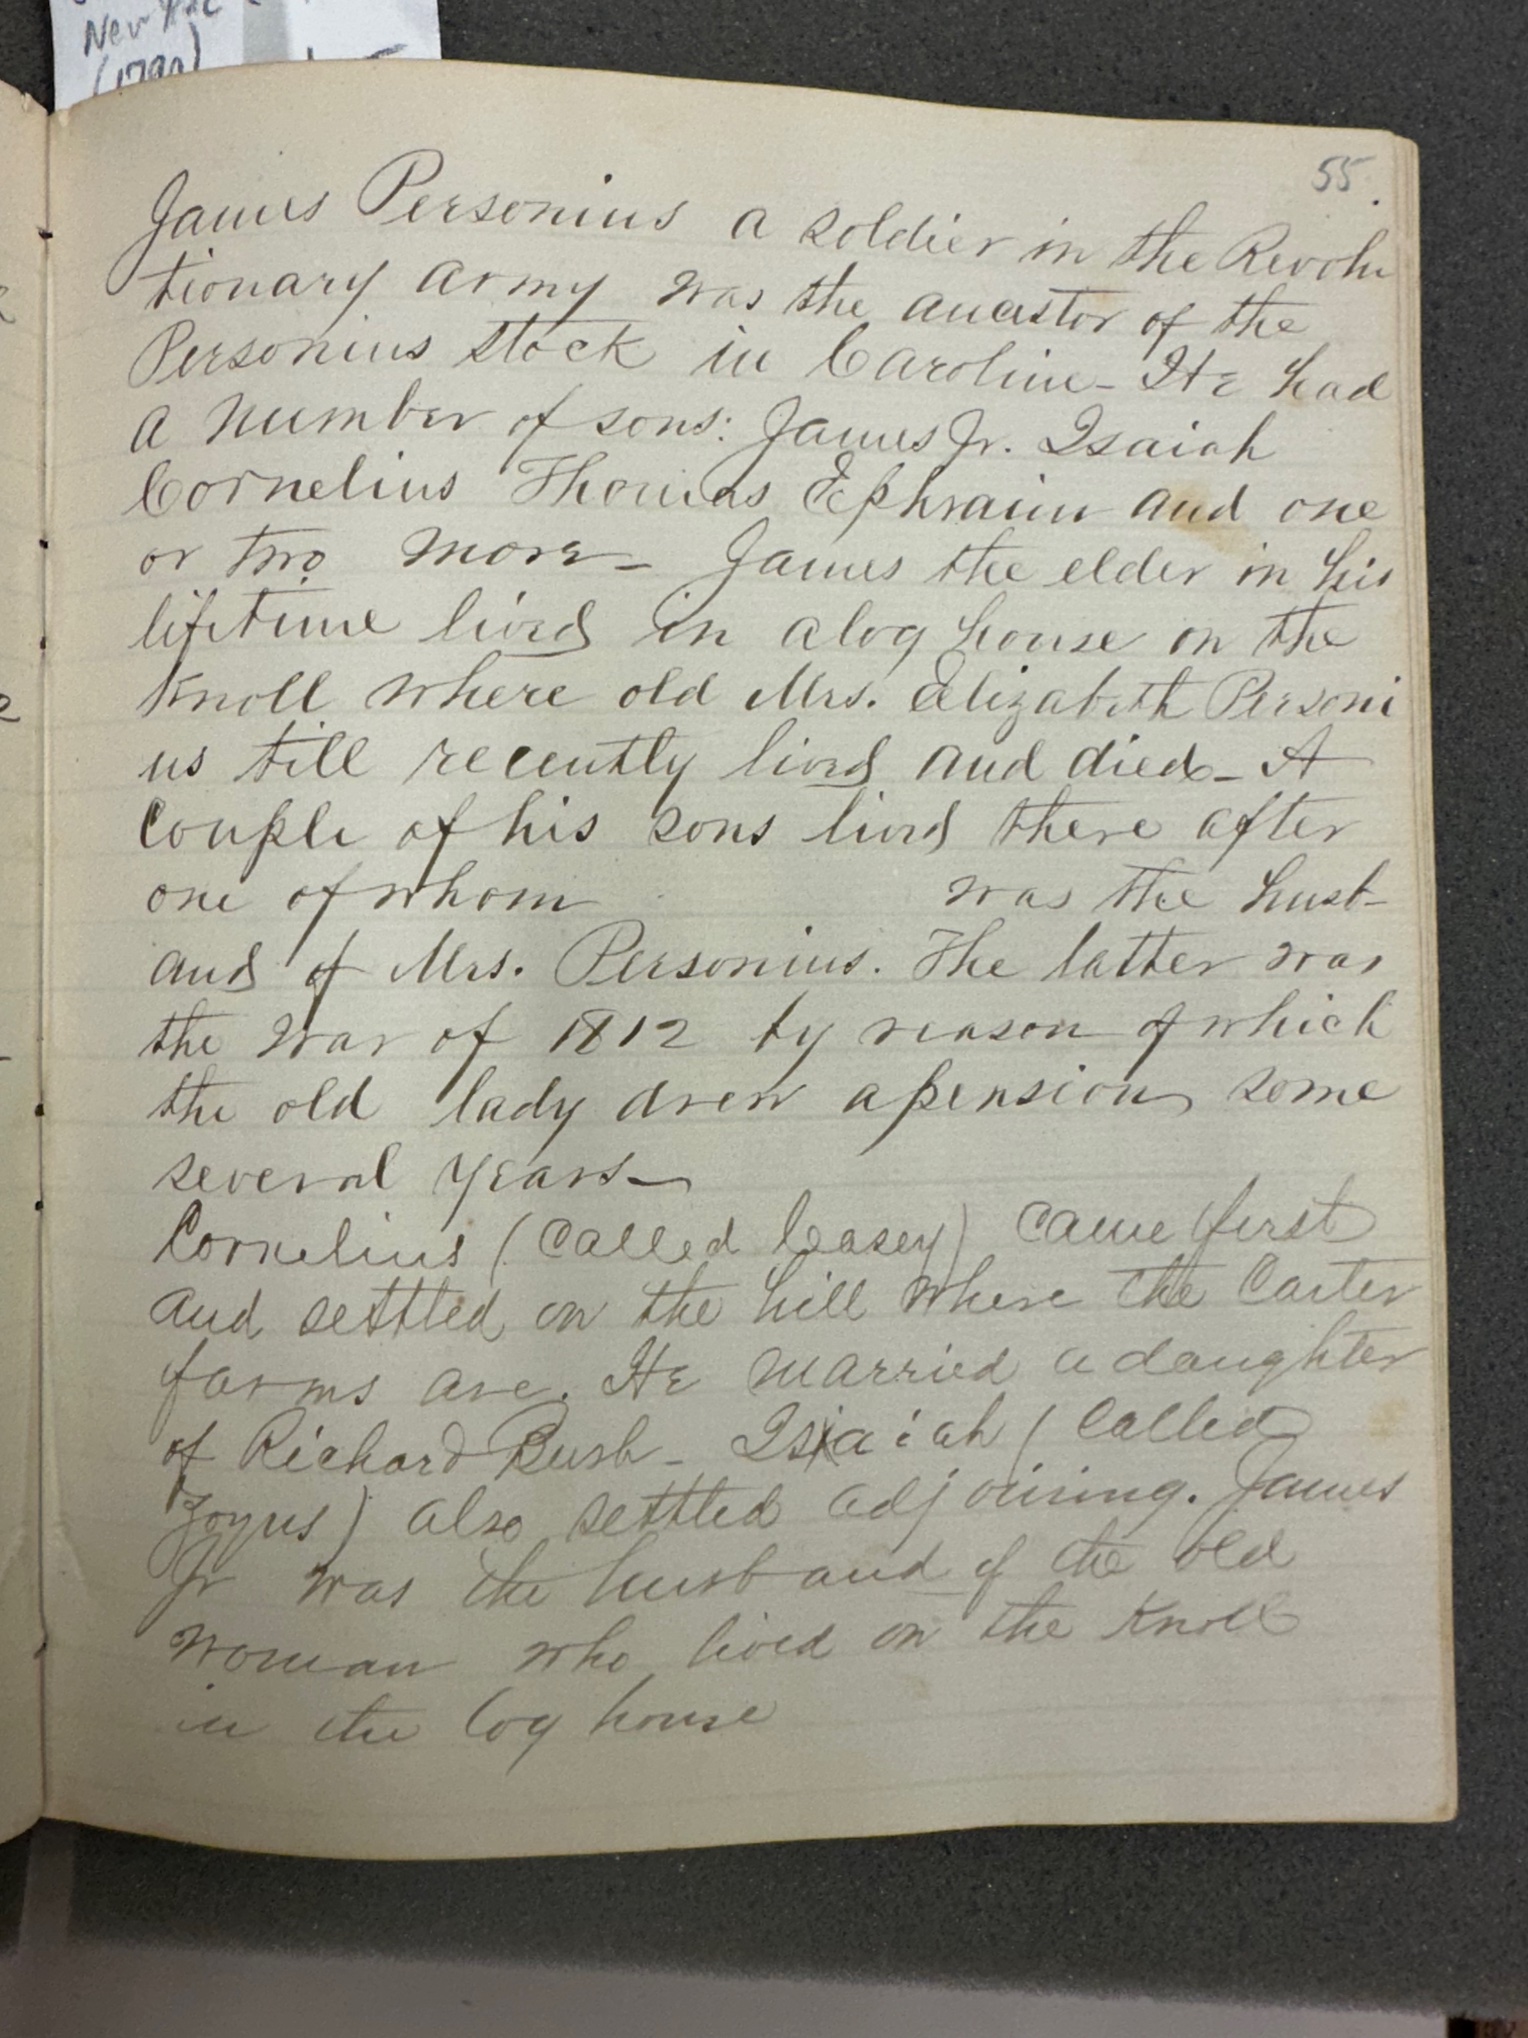 New
(1790)
55.
James Personius a soldier in the Revolu
tionary army was the ancestor of the
Personius stock in Caroline - He had
a number of sons: James Jr. Isaiah
Cornelius Thomas Ephraim and one
or two more - James the elder in his
lifetime lived in a log house on the
Knoll where old Mrs. Elizabeth Personi
us till recently lived and died - A
couple of his sons lived there after
one of whom was the husb-
and of Mrs. Personius. The latter was
the war of 1812 by reason of which
the old lady drew a pension some
several years -
Cornelius (called Casey) came first
and settled on the hill where the Carter
farms are. He married a daughter
of Richard Bush - Isaiah (called
) also settled adjoining. James
Jr was the husband of the old
woman who lived on the Knoll
in the log house